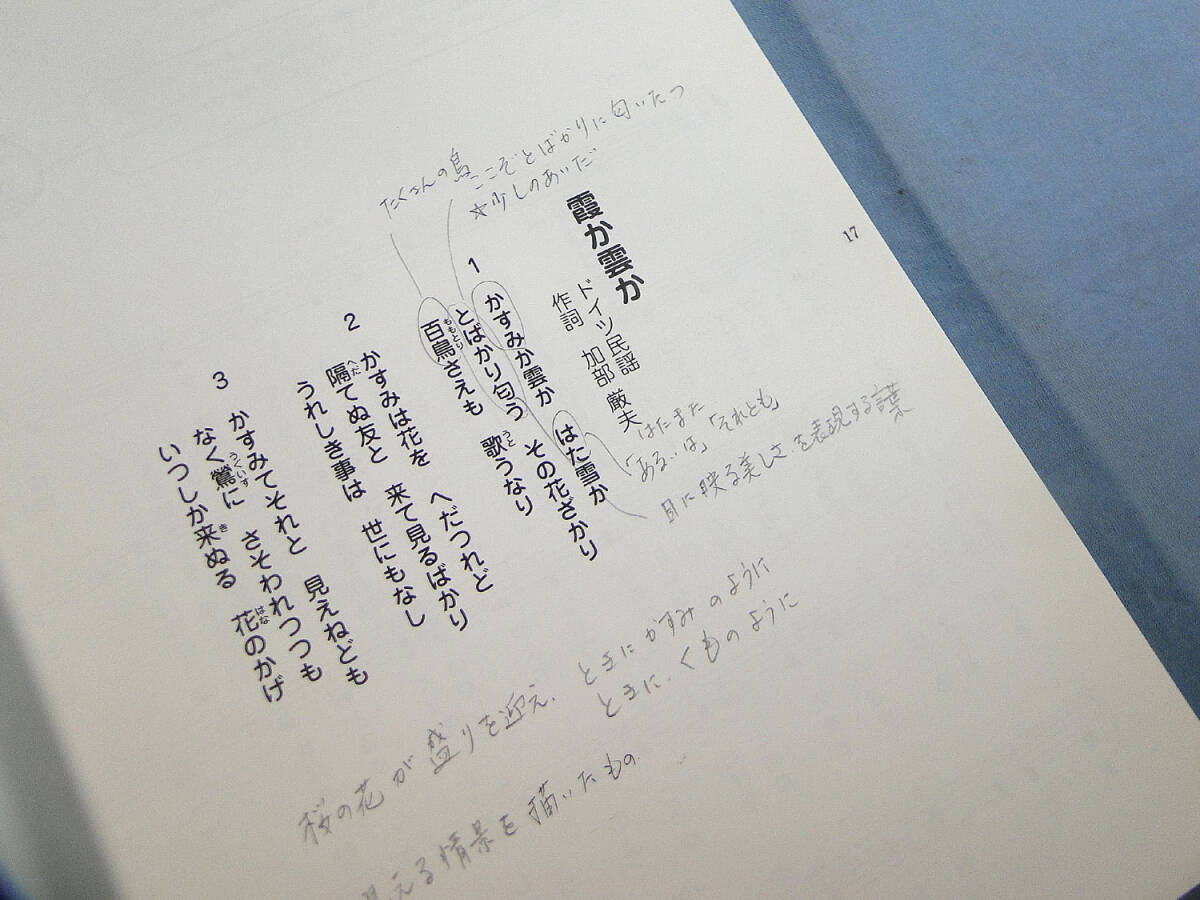 17
霞か雲か
ドイツ民謡
作詞 加部 厳夫
1
かすみか雲か はた雪か
とばかり匂う その花ざかり
百鳥さえも 歌うなり
ももとり
うと
2
かすみは花を へだつれど
隔てぬ友と 来て見るばかり
へだ
うれしき事は 世にもなし
3
かすみてそれと 見えねども
なく鶯に さそわれつつも
うぐいす
いつしか来ぬる 花のかげ
き
はな
たくさんの鳥
ここぞとばかりに匂いたつ
☆少しのあいだ
はたまた
「あるいは」「それとも」
目に映る美しさを表現する言葉
桜の花が盛りを迎え、ときにかすみのように
ときに、くものように
見える情景を描いたもの